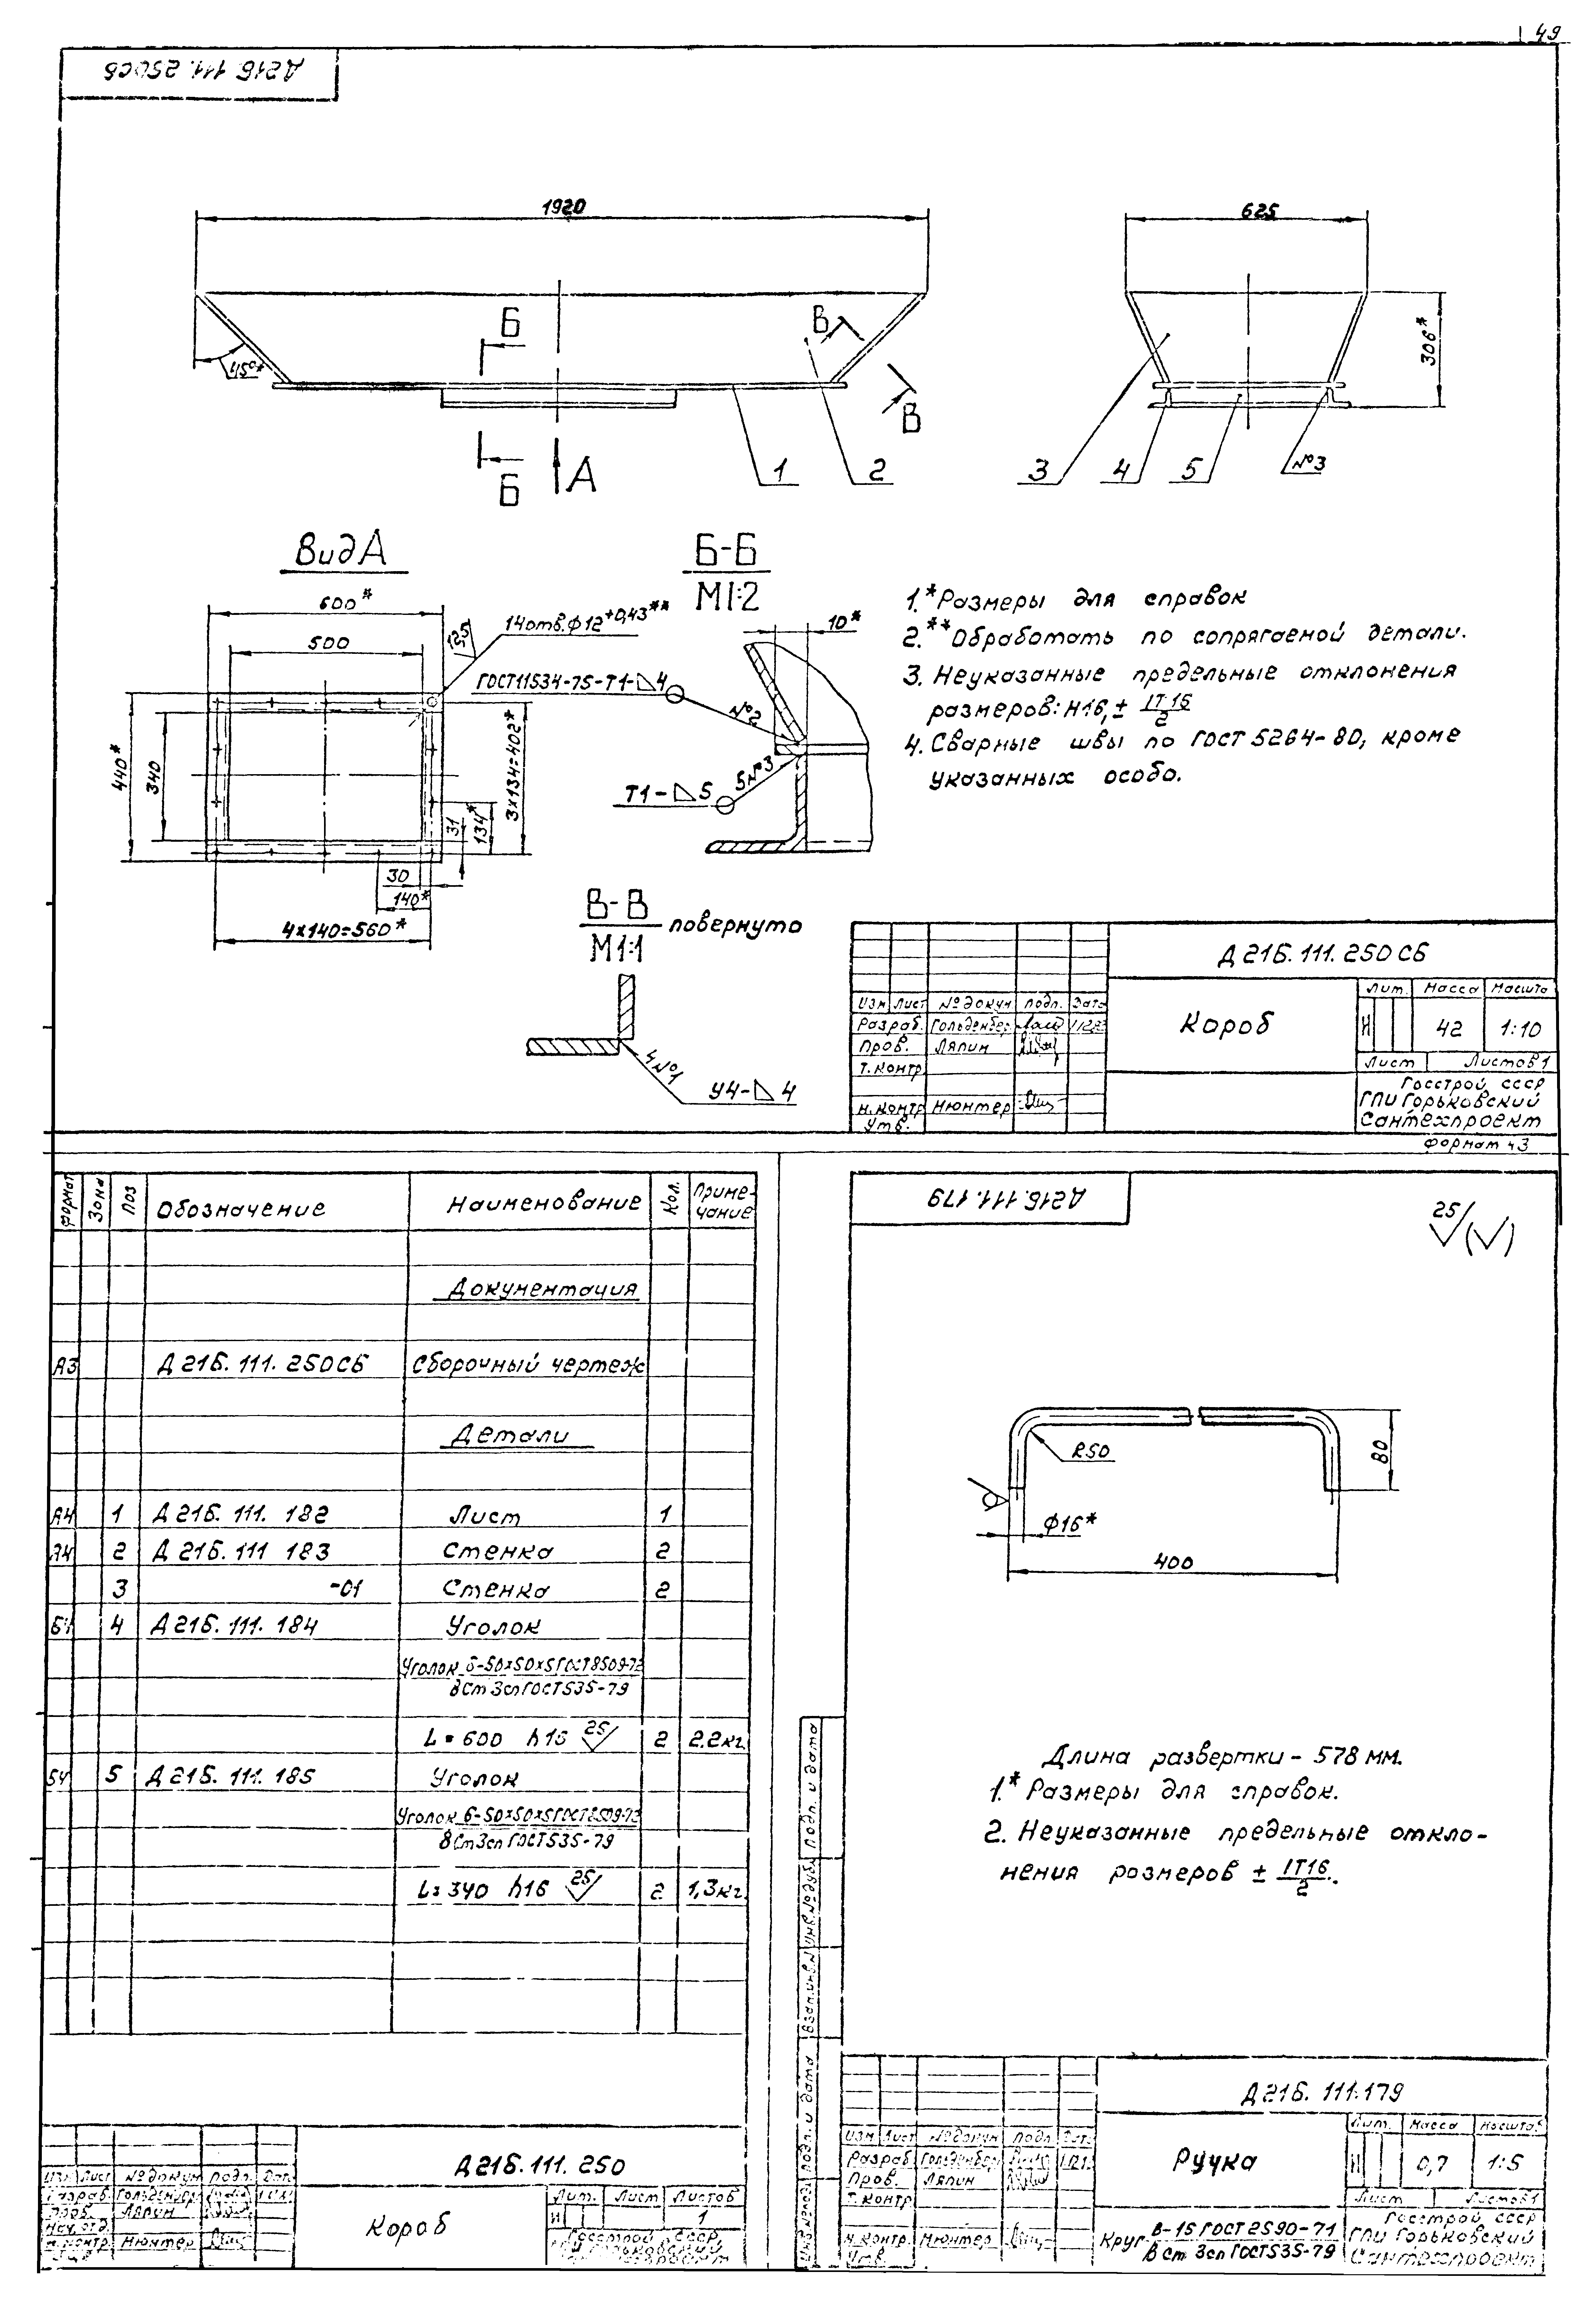 49
Д21Б.111.250СБ
1920
625
Б
В
45°*
306*
В
Б
А
1
2
3
4
5
№3
Вид А
600*
500
14отв.ф12+0,43**
12,5
ГОСТ11534-75-Т1-◺4
440*
340
3х134=402*
134*
31
30
140*
4х140=560*
Б-Б
М1:2
10*
№2
5№3
Т1-◺5
В-В повернуто
М1:1
4№1
У4-◺4
1.*Размеры для справок
2.**Обработать по сопрягаемой детали.
3. Неуказанные предельные отклонения
размеров: Н16, ± IT16/2
4. Сварные швы по ГОСТ 5264-80, кроме
указанных особо.
Д21Б.111.250СБ
Короб
Лит. Масса Масштаб
И 42 1:10
Лист Листов 1
Изм Лист №докум Подп. Дата
Разраб. Гольденбер
Пров. Ляпин
Т.контр
Н.контр Нюнтер
Утв.
Госстрой СССР
ГПИ Горьковский
Сантехпроект
Формат А3
Формат Зона Поз Обозначение Наименование Кол. Приме-
чание
Документация
А3 Д21Б.111.250СБ Сборочный чертеж
Детали
А4 1 Д21Б.111.182 Лист 1
А4 2 Д21Б.111 183 Стенка 2
3 -01 Стенка 2
БЧ 4 Д21Б.111.184 Уголок
Уголок Б-50х50х5ГОСТ8509-72
ВСт3спГОСТ535-79
L=600 h16 25 2 2.2кг
БЧ 5 Д21Б.111.185 Уголок
Уголок Б-50х50х5ГОСТ8509-72
ВСт3спГОСТ535-79
L=340 h16 25 2 1,3кг
Д21Б.111.250
Короб
Лит. Лист Листов
И 1
Изм Лист №докум Подп. Дата
Разраб. Гольденбер
Пров. Ляпин
Нач.отд.
Н.контр Нюнтер
Госстрой СССР
Д21Б.111.179
25
R50
80
ф16*
400
Длина развертки - 578 мм.
1.* Размеры для справок.
2. Неуказанные предельные откло-
нения размеров ± IT16/2.
Подп. и дата
Инв.№дубл
Взам.инв.№
Подп. и дата
Инв.№подл
Д21Б.111.179
Ручка
Лит. Масса Масштаб
И 0,7 1:5
Лист Листов1
Изм Лист №докум Подп Дата
Разраб Гольденбер
Пров. Ляпин
Т.контр
Н.контр. Нюнтер
Утв.
Круг В-16 ГОСТ2590-71
ВСт 3сп ГОСТ535-79
Госстрой СССР
ГПИ Горьковский
Сантехпроект